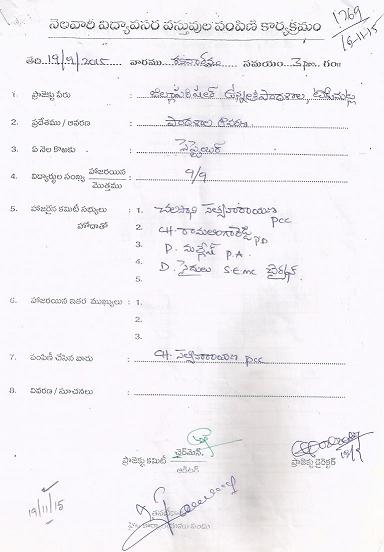 నెలవారి విద్యావసర వస్తువుల పంపిణి కార్యక్రమం
1769
19-11-15
తేది. 19/9/2015 వారము శనివారం సమయం 3 pm. గం॥
1. ప్రాజెక్టు పేరు : జిల్లాపరిషత్ ఉన్నత పాఠశాల,
2. ప్రదేశము / ఆవరణ : పాఠశాల ఆవరణ
3. ఏ నెల కొఱకు : సెప్టెంబర్
4. విద్యార్థుల సంఖ్య హాజరయిన / మొత్తము : 9/9
5. హాజరైన కమిటీ సభ్యులు : 1. సత్యనారాయణ PCC
హోదాతో 2. CH. రామలింగారెడ్డి P.D
3. D. P.A.
4. D. సైదులు S.E.MC చైర్మన్
5.
6. హాజరయిన ఇతర ముఖ్యులు : 1.
2.
3.
7. పంపిణీ చేసిన వారు : CH. సత్యనారాయణ PCC
8. వివరణ / సూచనలు :
ప్రాజెక్టు కమిటీ చైర్‌మెన్, / ఆడిటర్
ప్రాజెక్టు డైరెక్టర్
19/11/15